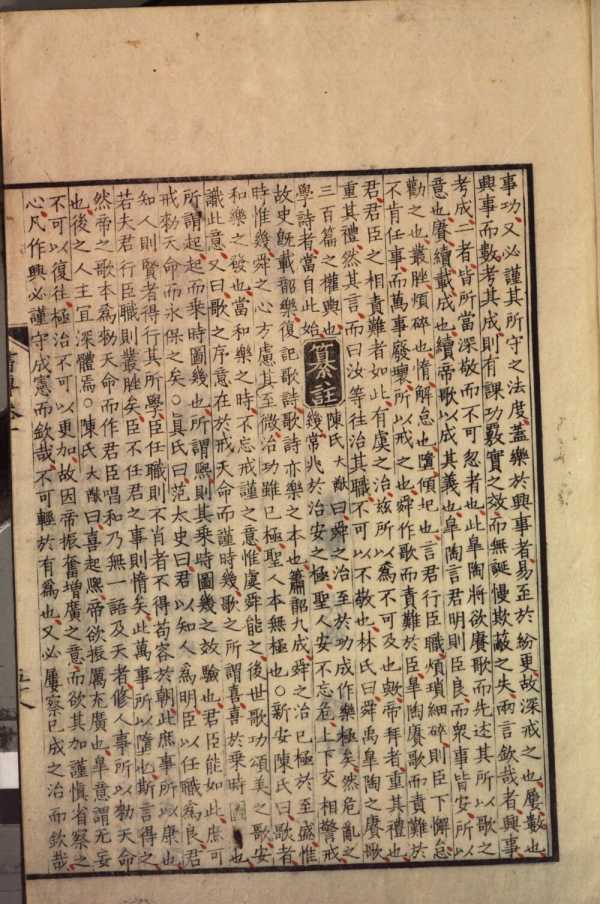 事功又必謹其所守之法度蓋樂於興事者易至於紛更故深戒之也屢數也
興事而數考其成則有課功覈實之效而無誕慢欺蔽之失兩言欽哉者興事
考成二者皆所當深敬而不可忽者也此臯陶將欲賡歌而先述其所以歌之
意也賡續載成也續帝歌以成其義也臯陶言君明則臣良而衆事皆安所以
勸之也叢脞煩碎也惰懈怠也墮傾圮也言君行臣職煩瑣細碎則臣下懈怠
不肯任事而萬事廢壞所以戒之也舜作歌而責難於臣臯陶賡歌而責難於
君君臣之相責難者如此有虞之治兹所以爲不可及也歟帝拜者重其禮也
重其禮然其言而曰汝等往治其職不可以不敬也林氏曰舜禹臯陶之賡歌
三百篇之權輿也
學詩者當自此始
纂註
陳氏大猷曰舜之治至於功成作樂極矣然危亂之
幾常兆於治安之極聖人安不忘危上下交相警戒
故史旣載韶樂復記歌詩歌詩亦樂之本也簫韶九成舜之治已極於至盛惟
時惟幾舜之心方慮其至微治功雖已極聖人本無極也○新安陳氏曰歌者
和樂之發也當和樂之時不忘戒謹之意惟虞舜能之後世歌功頌美之歌安
識此意又曰歌之序意在於戒天命而謹時幾歌之所謂喜喜於乘時也
所謂起起而乘時圖幾也所謂熙則其乘時圖幾之效驗也君臣能如此庶可
戒勑天命而永保之矣○眞氏曰范太史曰君以知人爲明臣以任職爲良君
知人則賢者得行其所學臣任職則不肖者不得苟容於朝此庶事所以康也
若夫君行臣職則叢脞矣臣不任君之事則惰矣此萬事所以墮也斯言得之
然帝之歌本爲勑天命而作君臣唱和乃無一語及天者修人事所以勑天命
也後之人主宜深體焉○陳氏大猷曰喜起熙帝欲振厲充廣也臯意謂无妄
不可以復往極治不可以更加故因帝振奮增廣之意而欲其加謹愼省察之
心凡作興必謹守成憲而欽哉不可輕於有爲也又必屢察已成之治而欽哉